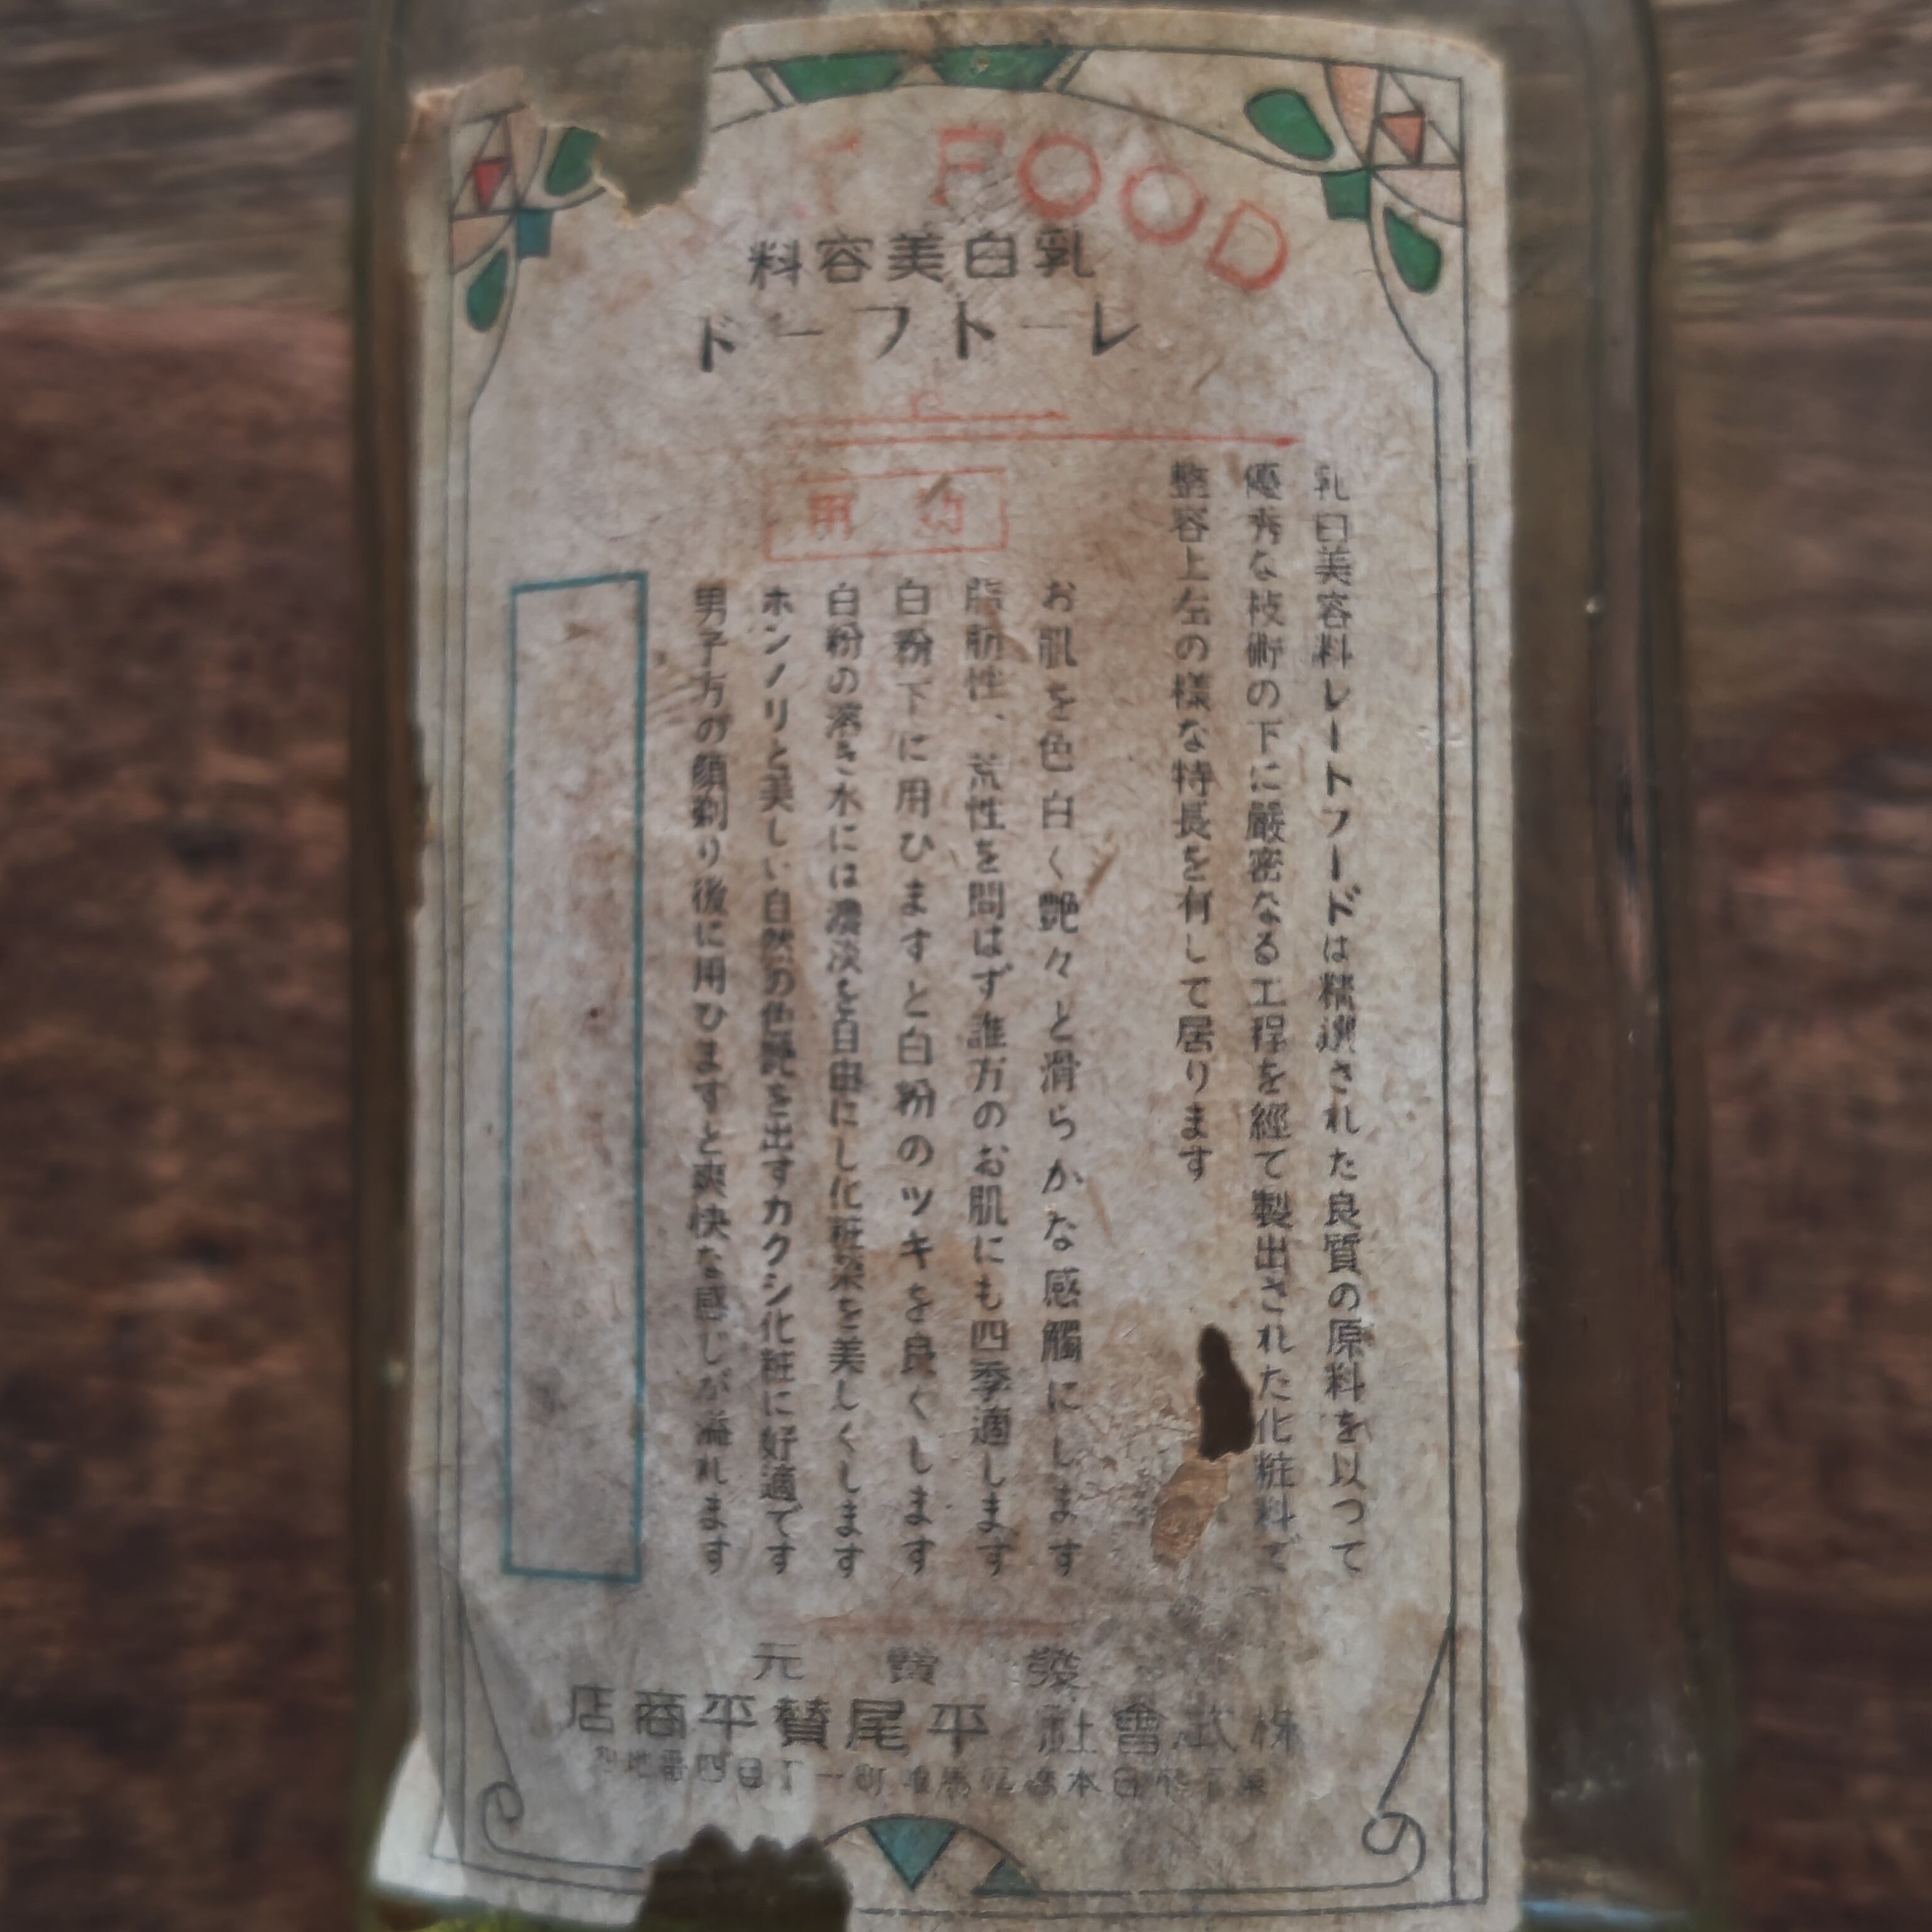 FOOD
乳白美容料
レートフード
効用
乳白美容料レートフードは精選された良質の原料を以つて
優秀な技術の下に嚴密なる工程を經て製出された化粧料で
整容上左の様な特長を有して居ります
お肌を色白く艷々と滑らかな感觸にします
脂肪性、荒性を問はず誰方のお肌にも四季適します
白粉下に用ひますと白粉のツキを良くします
白粉の溶き水には濃淡を自由にし化粧榮を美しくします
ホンノリと美しい自然の色艷を出すカクシ化粧に好適です
男子方の顔剃り後に用ひますと爽快な感じが溢れます
發賣元
株式會社 平尾賛平商店
日本橋區馬喰町一丁目四番地